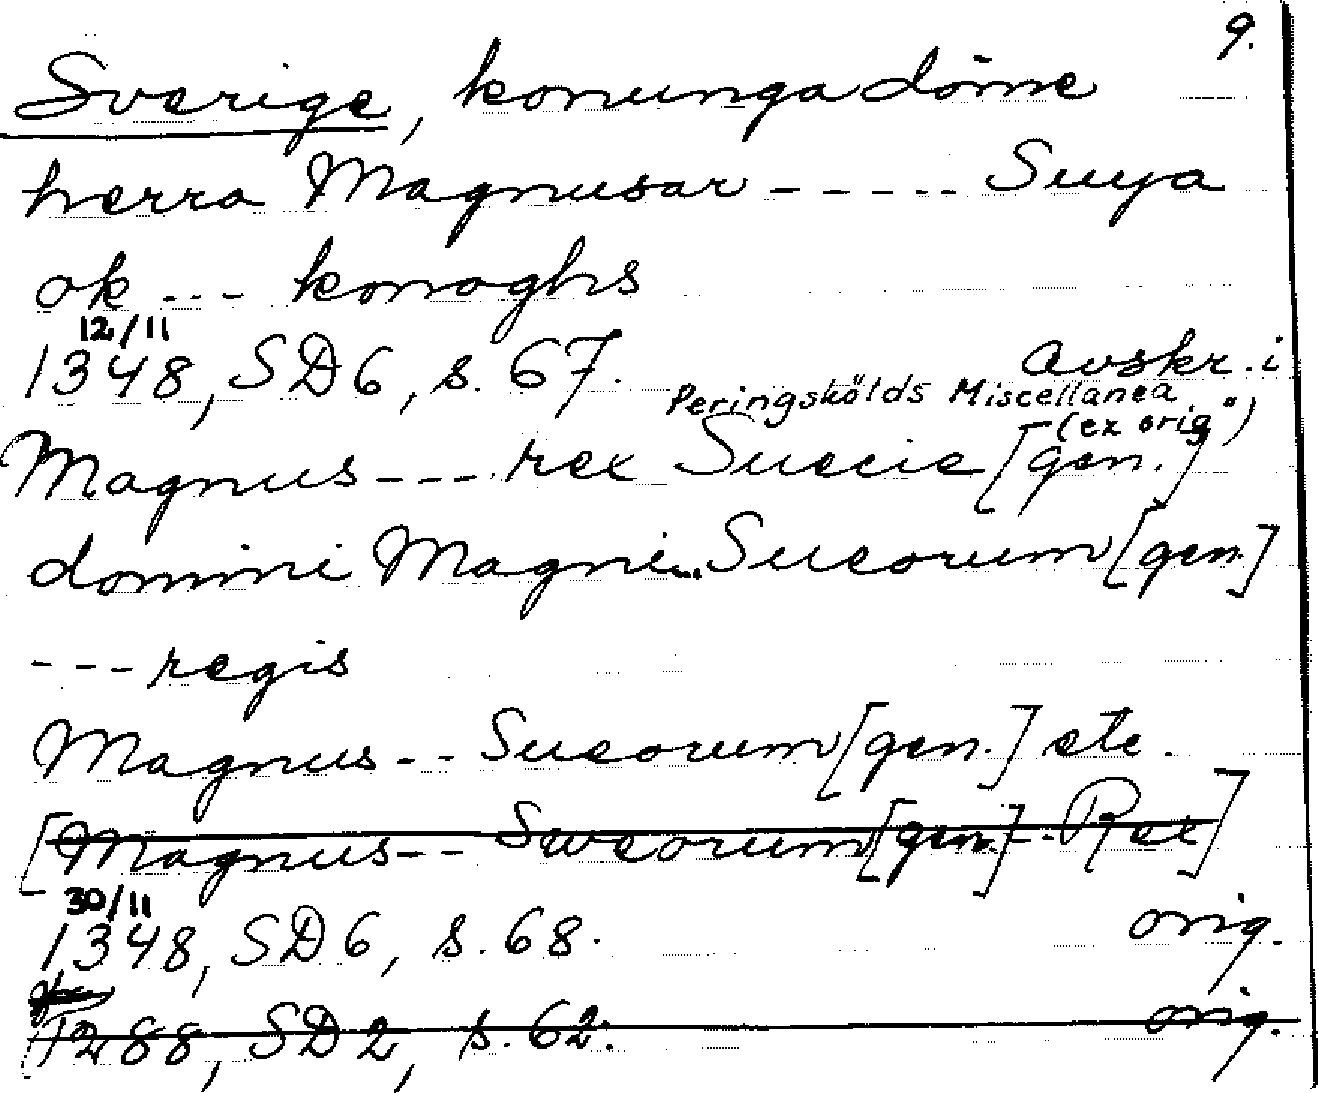 9.
Sverige, konungadöme
herra Magnusar ----- Suya
ok --- konoghs
12/11
1348, SD6, s. 67. avskr. i
Peringskölds Miscellanea
(ex orig")
Magnus --- rex Suecie [gen.]
domini Magni... Sueorum [gen.]
--- regis
Magnus -- Sueorum [gen.] etc.
[Magnus -- Sweorum [gen.] -- Rex]
30/11
1348, SD6, s. 68. orig.
1288, SD2, s. 62. orig.